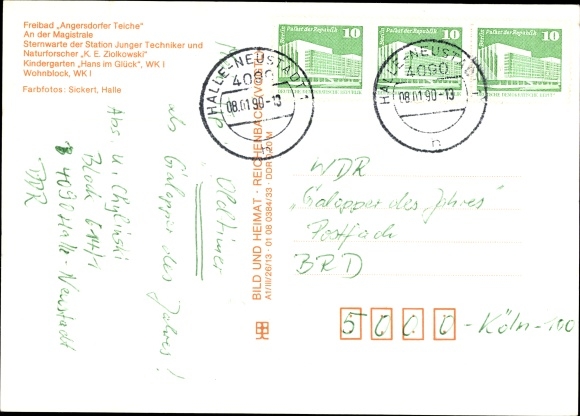 Freibad „Angersdorfer Teiche"
An der Magistrale
Sternwarte der Station Junger Techniker und
Naturforscher „K. E. Ziolkowski"
Kindergarten „Hans im Glück", WK I
Wohnblock, WK I
Farbfotos: Sickert, Halle
Berlin Palast der Republik 10
Berlin Palast der Republik 10
Berlin Palast der Republik 10
HALLE-NEUSTADT 1
4090
08.01.90-13
n
HALLE-NEUSTADT 1
4090
08.01.90-13
n
BILD UND HEIMAT · REICHENBACH (VOGTL)
A1/III/26/13 · 01 08 0384/33 · DDR
Oldtimer
als Galopper des Jahres!
Abs. U. Chylinski
Block 611/1
4090 Halle-Neustadt
DDR
WDR
„Galopper des Jahres"
Postfach
BRD
5000 - Köln-100